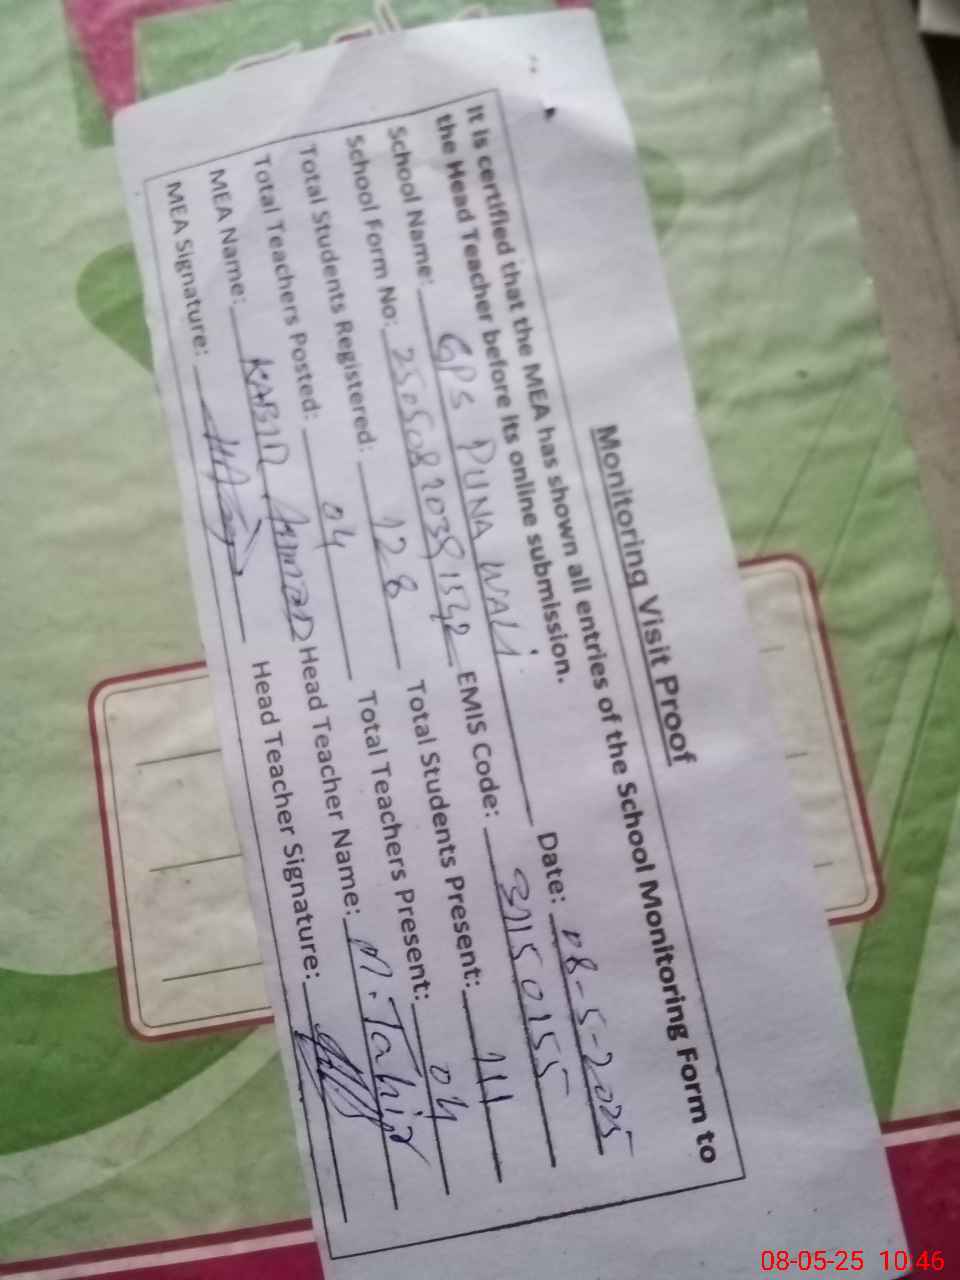 Monitoring Visit Proof
It is certified that the MEA has shown all entries of the School Monitoring Form to
the Head Teacher before its online submission.
School Name: GPS PUNA WALI Date: 08-5-2025
School Form No: EMIS Code: 37150155
Total Students Registered: 128 Total Students Present: 111
Total Teachers Posted: 04 Total Teachers Present: 04
MEA Name: KABIR AHMAD Head Teacher Name: M. Tahir
MEA Signature: Head Teacher Signature:
08-05-25 10:46